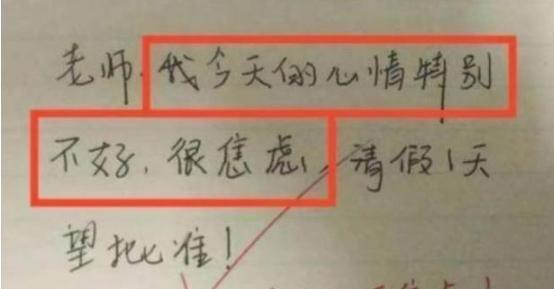 老师，我今天的心情特别
不好，很焦虑，请假1天
望批准！